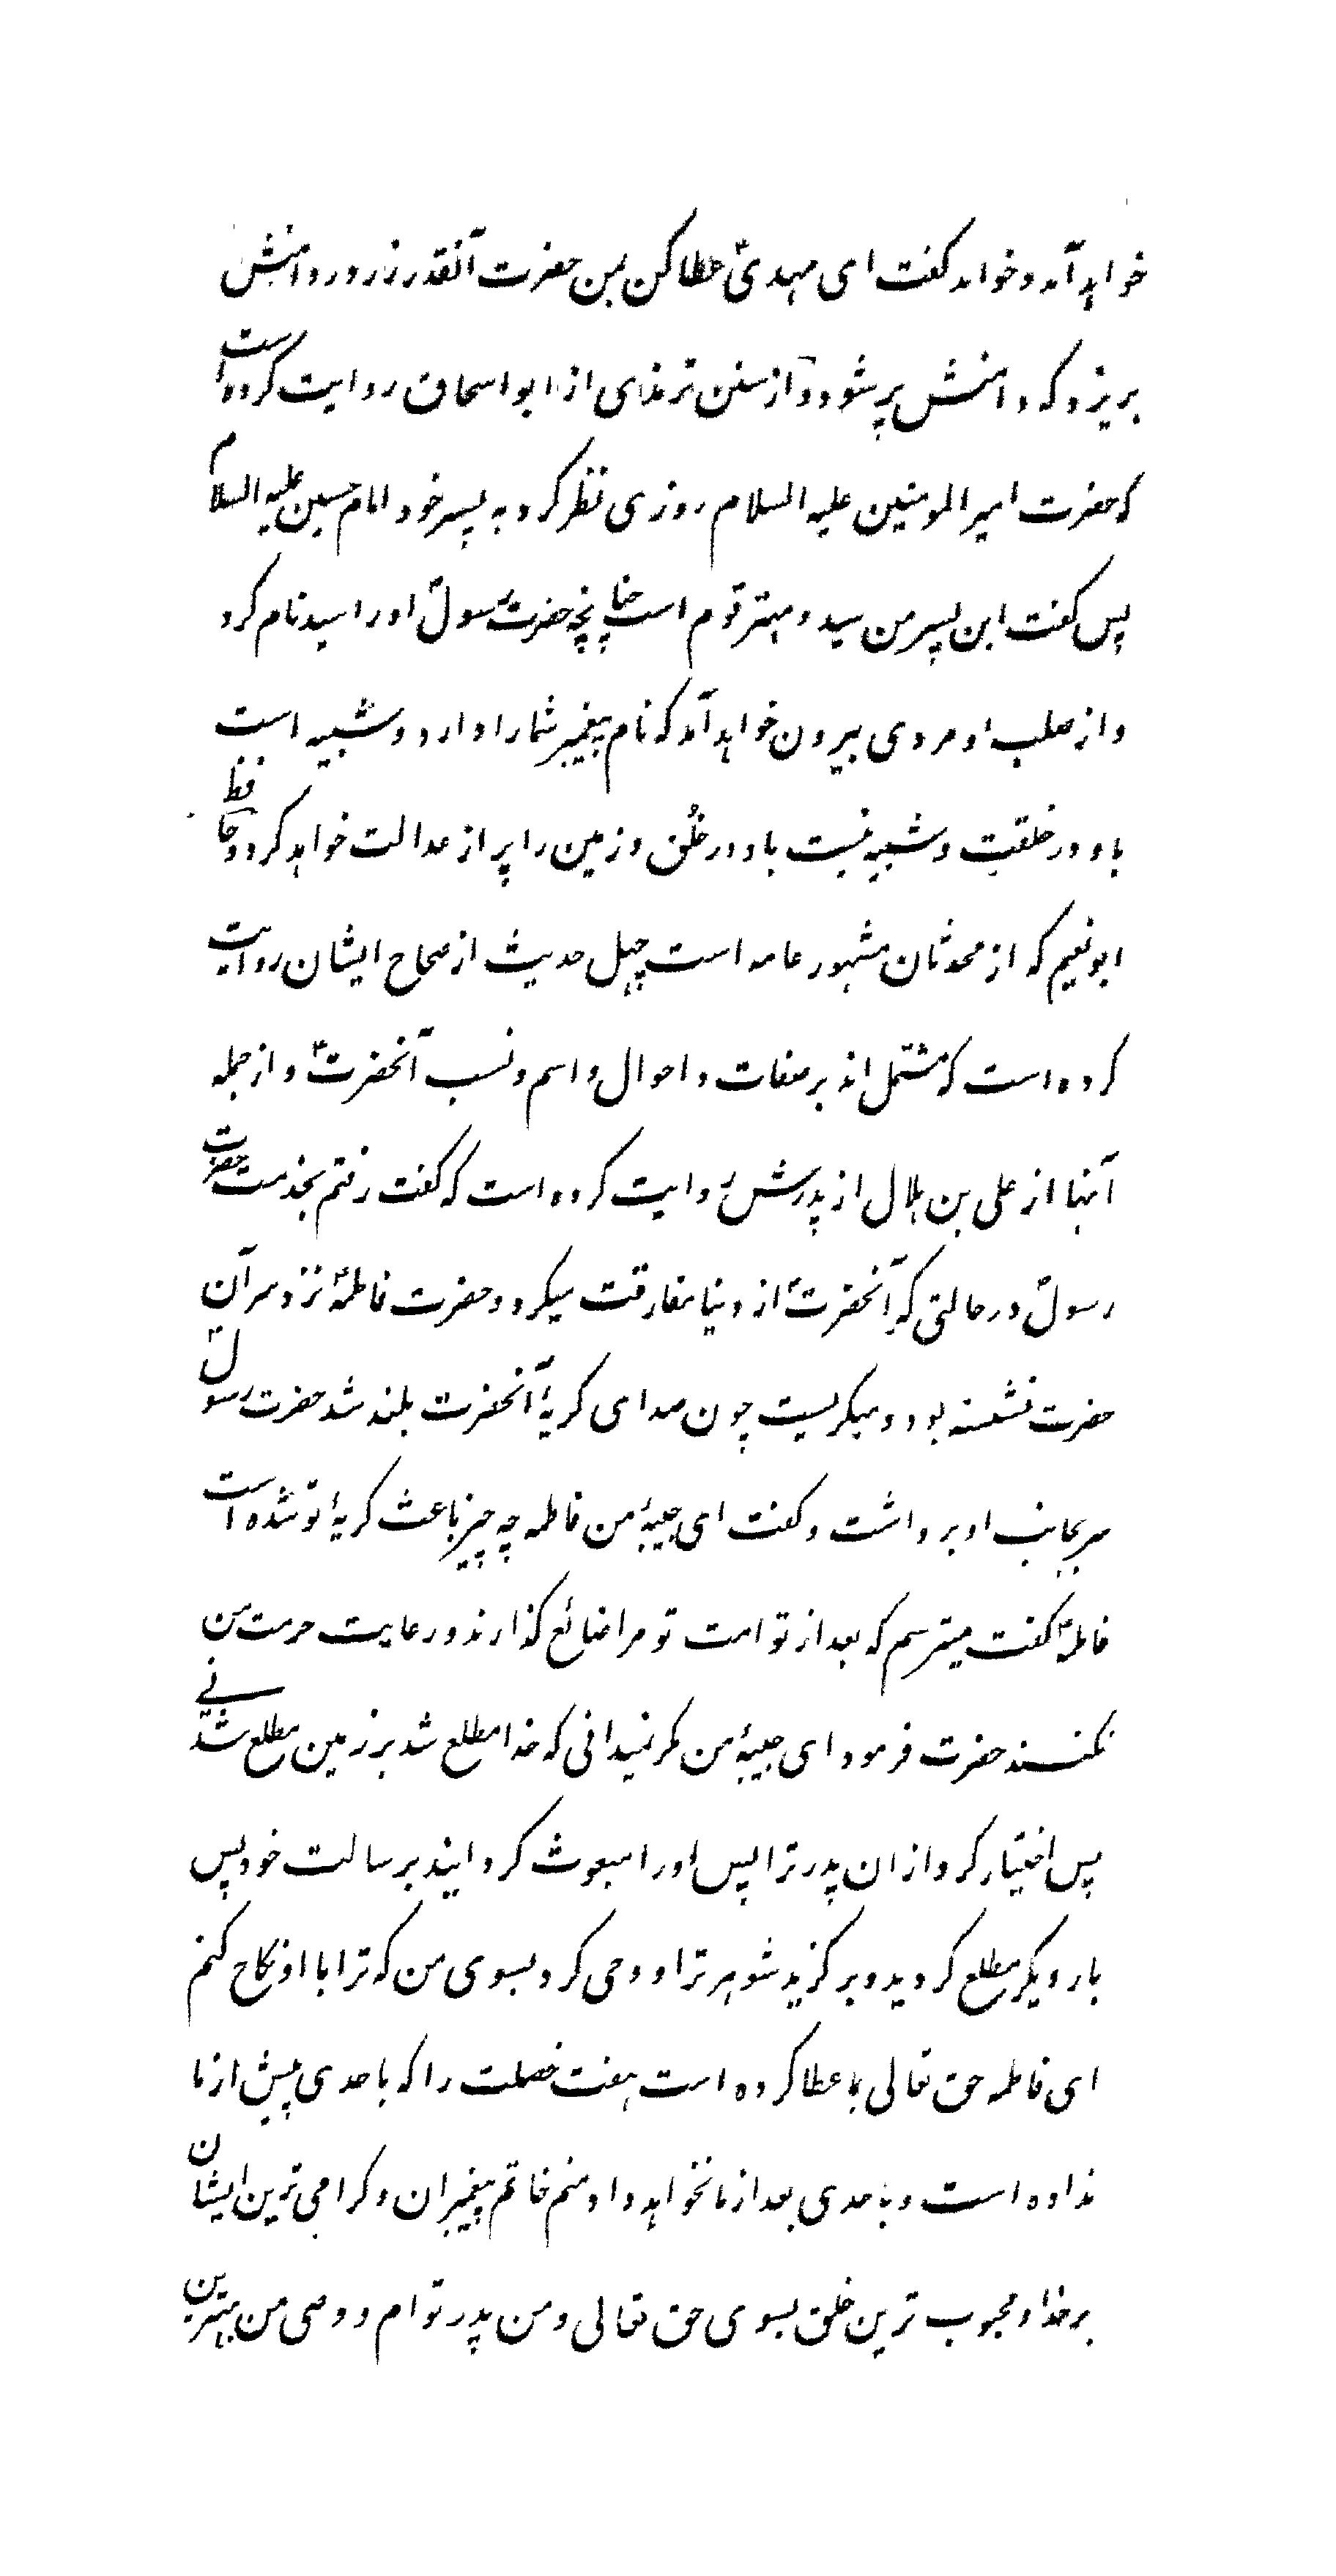 خواهد آمد و خواهد گفت ای مهدیؑ عطا کن بمن حضرت آنقدر زر در دامنش
بریزد که دامنش پر شود و از سنن ترمذی از ابو اسحاق روایت کرده است
که حضرت امیر المومنین علیه السلام روزی نظر کرد به پسر خود امام حسین علیه السلام
پس گفت این پسر من سید و مهتر قوم است چنانچه حضرت رسولؐ او را سید نام کرد
و از صلب او مردی بیرون خواهد آمد که نام پیغمبر شما را دارد و شبیه است
باو در خلقت و شبیه نیست باو در خُلق و زمین را پر از عدالت خواهد کرد و حافظ
ابو نعیم که از محدثان مشهور عامه است چهل حدیث از صحاح ایشان روایت
کرده است که مشتمل اند بر صفات و احوال و اسم و نسب آنحضرتؑ و از جمله
آنها از علی بن هلال از پدرش روایت کرده است که گفت رفتم بخدمت حضرت
رسولؐ در حالتی که آنحضرتؐ از دنیا مفارقت میکرد و حضرت فاطمهؑ نزد سر آن
حضرت نشسته بود و میگریست چون صدای گریهٔ آنحضرت بلند شد حضرت رسولؐ
سر بجانب او برداشت و گفت ای حبیبهٔ من فاطمه چه چیز باعث گریهٔ تو شده است
فاطمهؑ گفت میترسم که بعد از تو امت تو مرا ضائع گذارند و رعایت حرمت من
نکنند حضرت فرمود ای حبیبهٔ من مگر نمیدانی که خدا مطلع شد بر زمین مطلع شدنی
پس اختیار کرد از ان پدر ترا پس او را مبعوث گردانید برسالت خود پس
بار دیگر مطلع گردید و برگزید شوهر ترا و وحی کرد بسوی من که ترا با او نکاح کنم
ای فاطمه حق تعالی بما عطا کرده است هفت خصلت را که باحدی پیش از ما
نداده است و باحدی بعد از ما نخواهد داد منم خاتم پیغمبران و گرامی ترین ایشان
بر خدا و محبوب ترین خلق بسوی حق تعالی و من پدر توام و وصی من بهترین